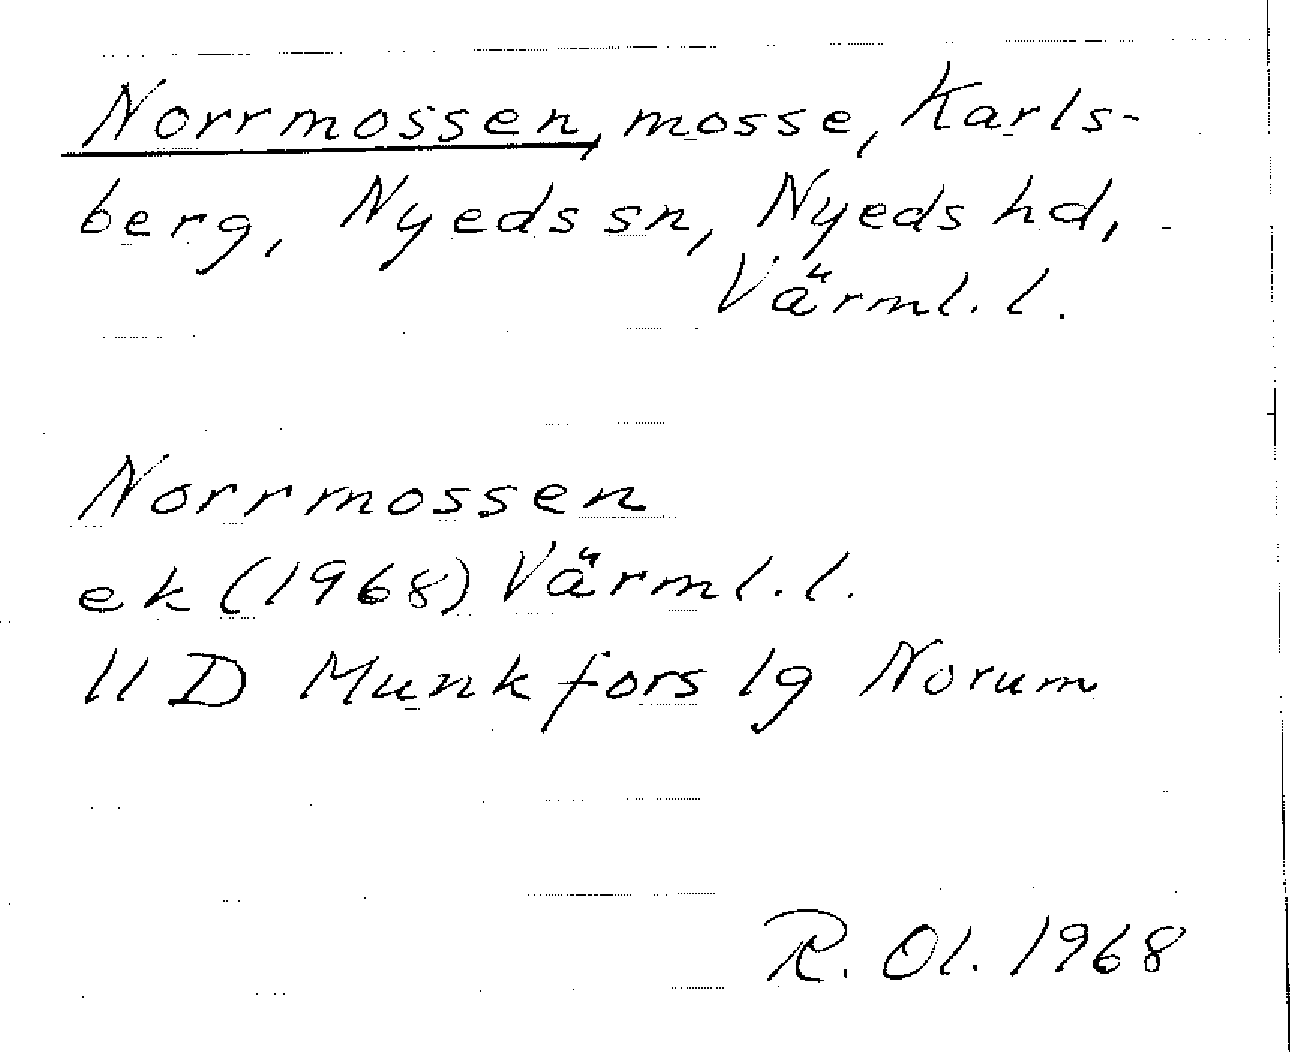 Norrmossen, mosse, Karls-
berg, Nyeds sn, Nyeds hd,
Värml. l.
Norrmossen
ek (1968) Värml. l.
11 D Munkfors 1g Norum
R. Ol. 1968